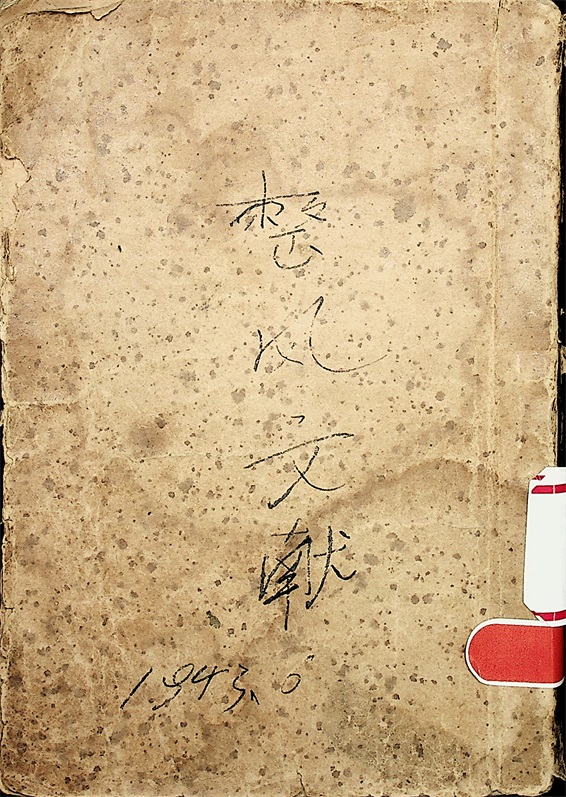 整风文献
1943.6